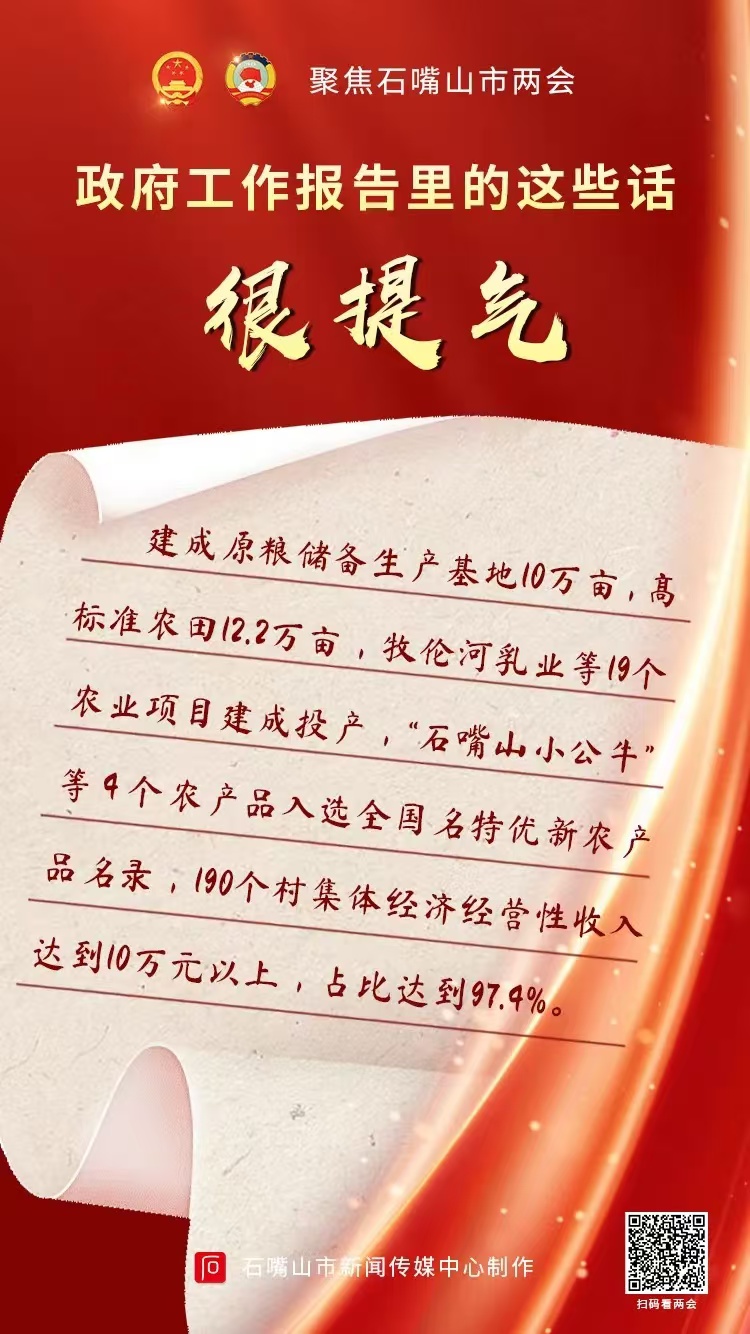 聚焦石嘴山市两会
政府工作报告里的这些话
很提气
建成原粮储备生产基地10万亩，高
标准农田12.2万亩，牧伦河乳业等19个
农业项目建成投产，“石嘴山小公牛”
等4个农产品入选全国名特优新农产
品名录，190个村集体经济经营性收入
达到10万元以上，占比达到97.4%。
石嘴山市新闻传媒中心制作
扫码看两会